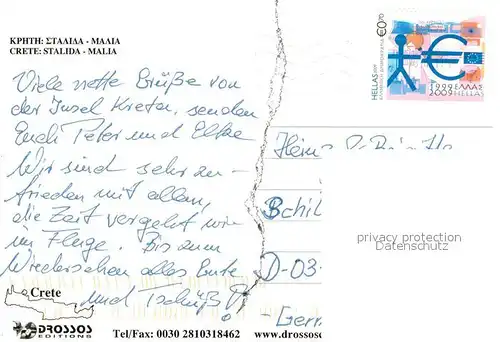 ΚΡΗΤΗ: ΣΤΑΛΙΔΑ - ΜΑΛΙΑ
CRETE: STALIDA - MALIA
€0,70
HELLAS
1999 ΕΛΛΑΣ
2009 HELLAS
Viele nette Grüße von
der Insel Kreta, senden
Euch Peter und Elke
Wir sind sehr zu-
frieden mit allem,
die Zeit vergeht wie
im Fluge. Bis zum
Wiedersehen alles Gute
und Tschüß!
Schil
D-03
Germ
privacy protection
Datenschutz
Crete
DROSSOS
EDITIONS
Tel/Fax: 0030 2810318462
www.drossos